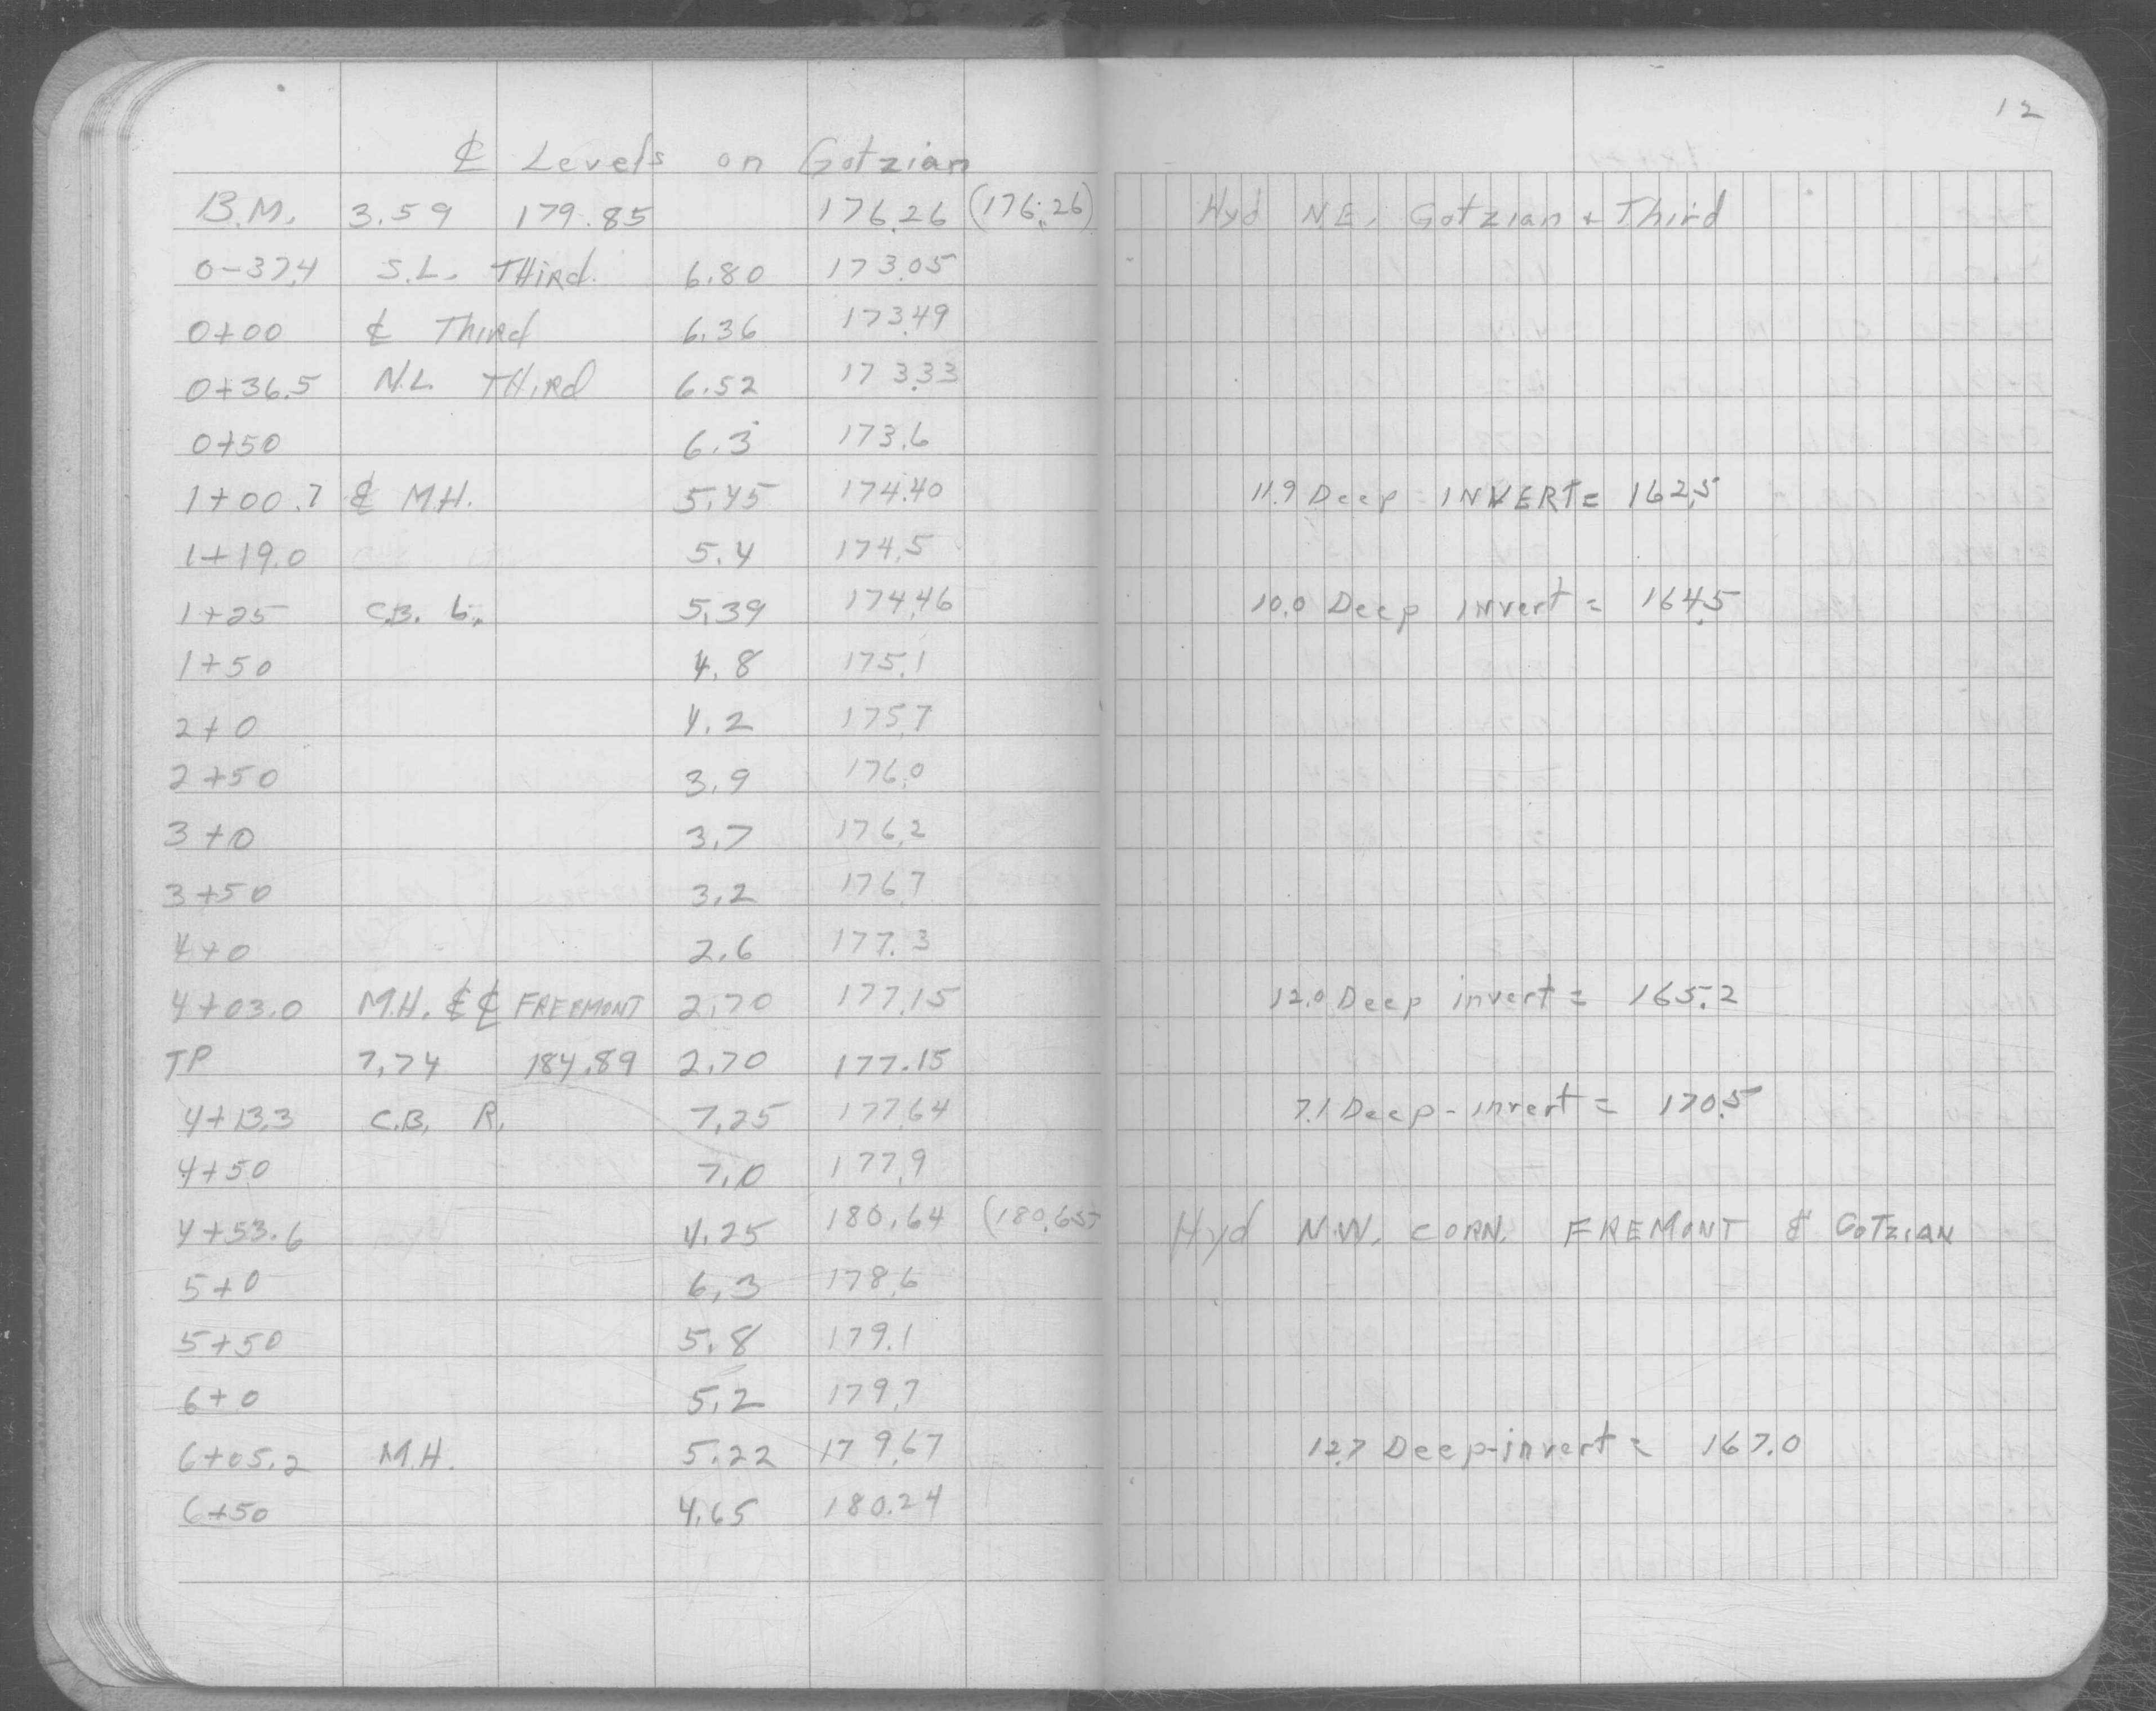 12
℄ Levels on Gotzian
B.M. 3.59 179.85 176.26 (176.26) Hyd N.E. Gotzian + Third
0-37.4 S.L. THird. 6.80 173.05
0+00 ℄ Third 6.36 173.49
0+36.5 N.L. THird 6.52 173.33
0+50 6.3 173.6
1+00.7 ℄ M.H. 5.45 174.40 11.9 Deep - INVERT = 162.5
1+19.0 5.4 174.5
1+25 C.B. L. 5.39 174.46 10.0 Deep invert = 164.5
1+50 4.8 175.1
2+0 4.2 175.7
2+50 3.9 176.0
3+0 3.7 176.2
3+50 3.2 176.7
4+0 2.6 177.3
4+03.0 M.H. ℄ ℄ FREEMONT 2.70 177.15 12.0 Deep invert = 165.2
TP 7.74 184.89 2.70 177.15
4+13.3 C.B. R. 7.25 177.64 7.1 Deep - invert = 170.5
4+50 7.0 177.9
4+53.6 4.25 180.64 (180.65) Hyd N.W. CORN. FREMONT & GOTZIAN
5+0 6.3 178.6
5+50 5.8 179.1
6+0 5.2 179.7
6+05.2 M.H. 5.22 179.67 12.7 Deep-invert = 167.0
6+50 4.65 180.24